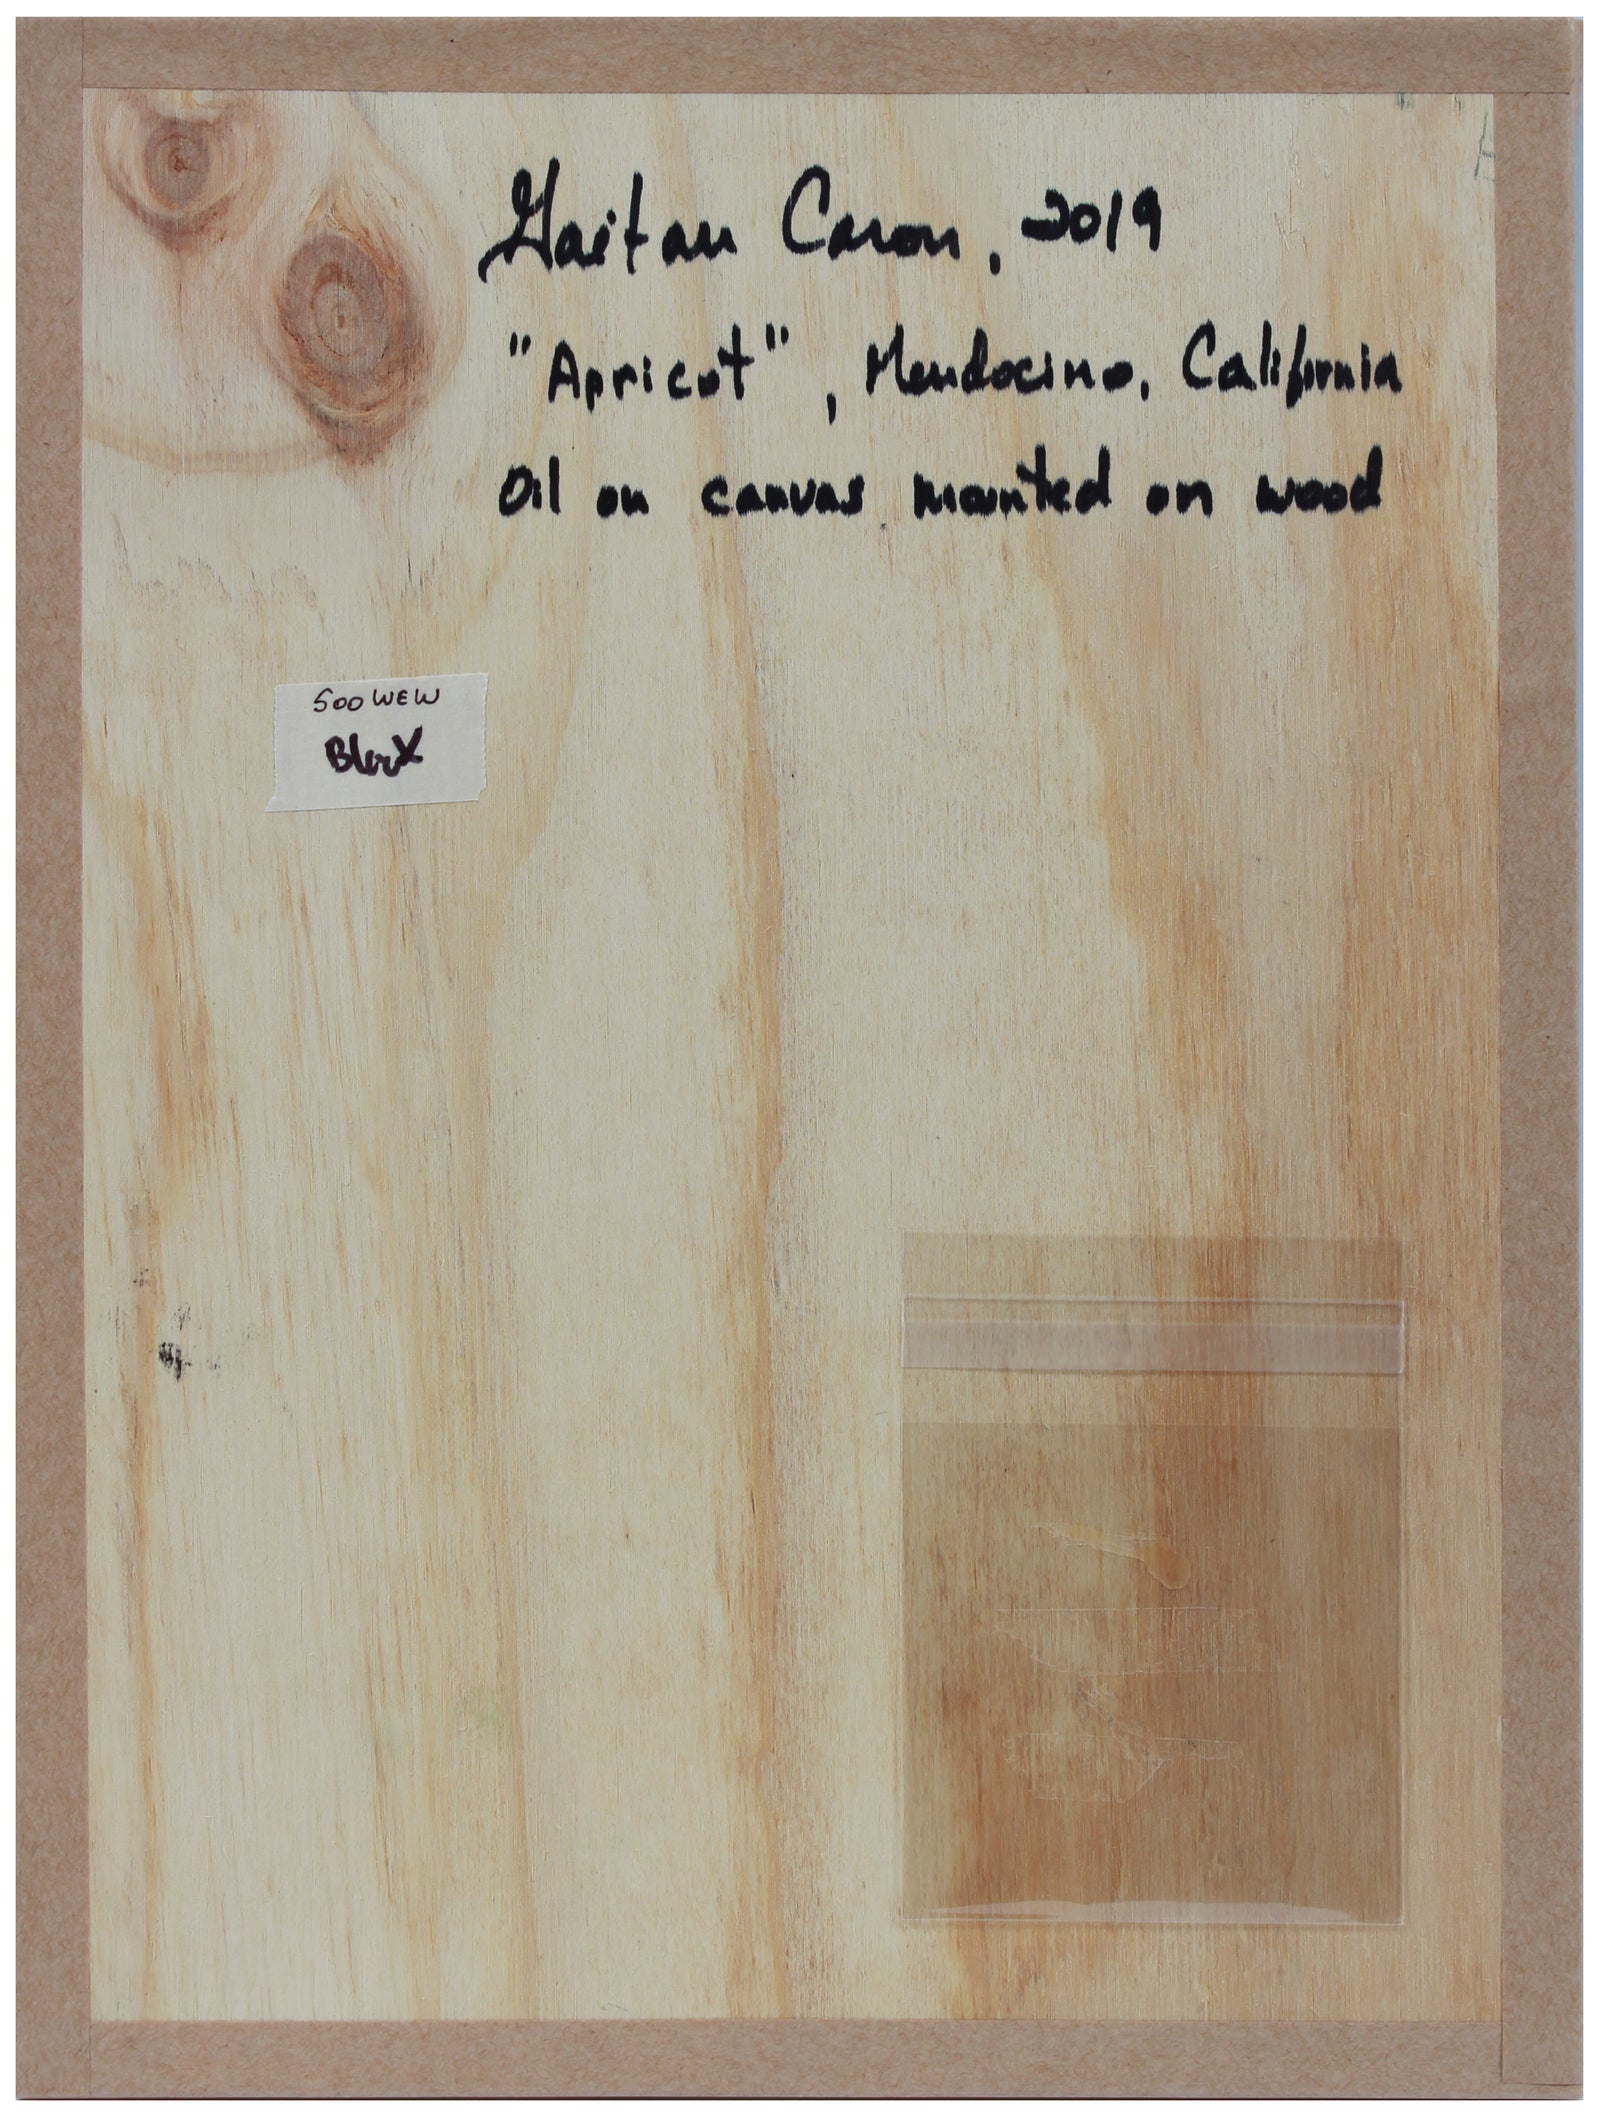 Gaitan Caron, 2019
"Apricot", Mendocino, California
Oil on canvas mounted on wood
500 WEW